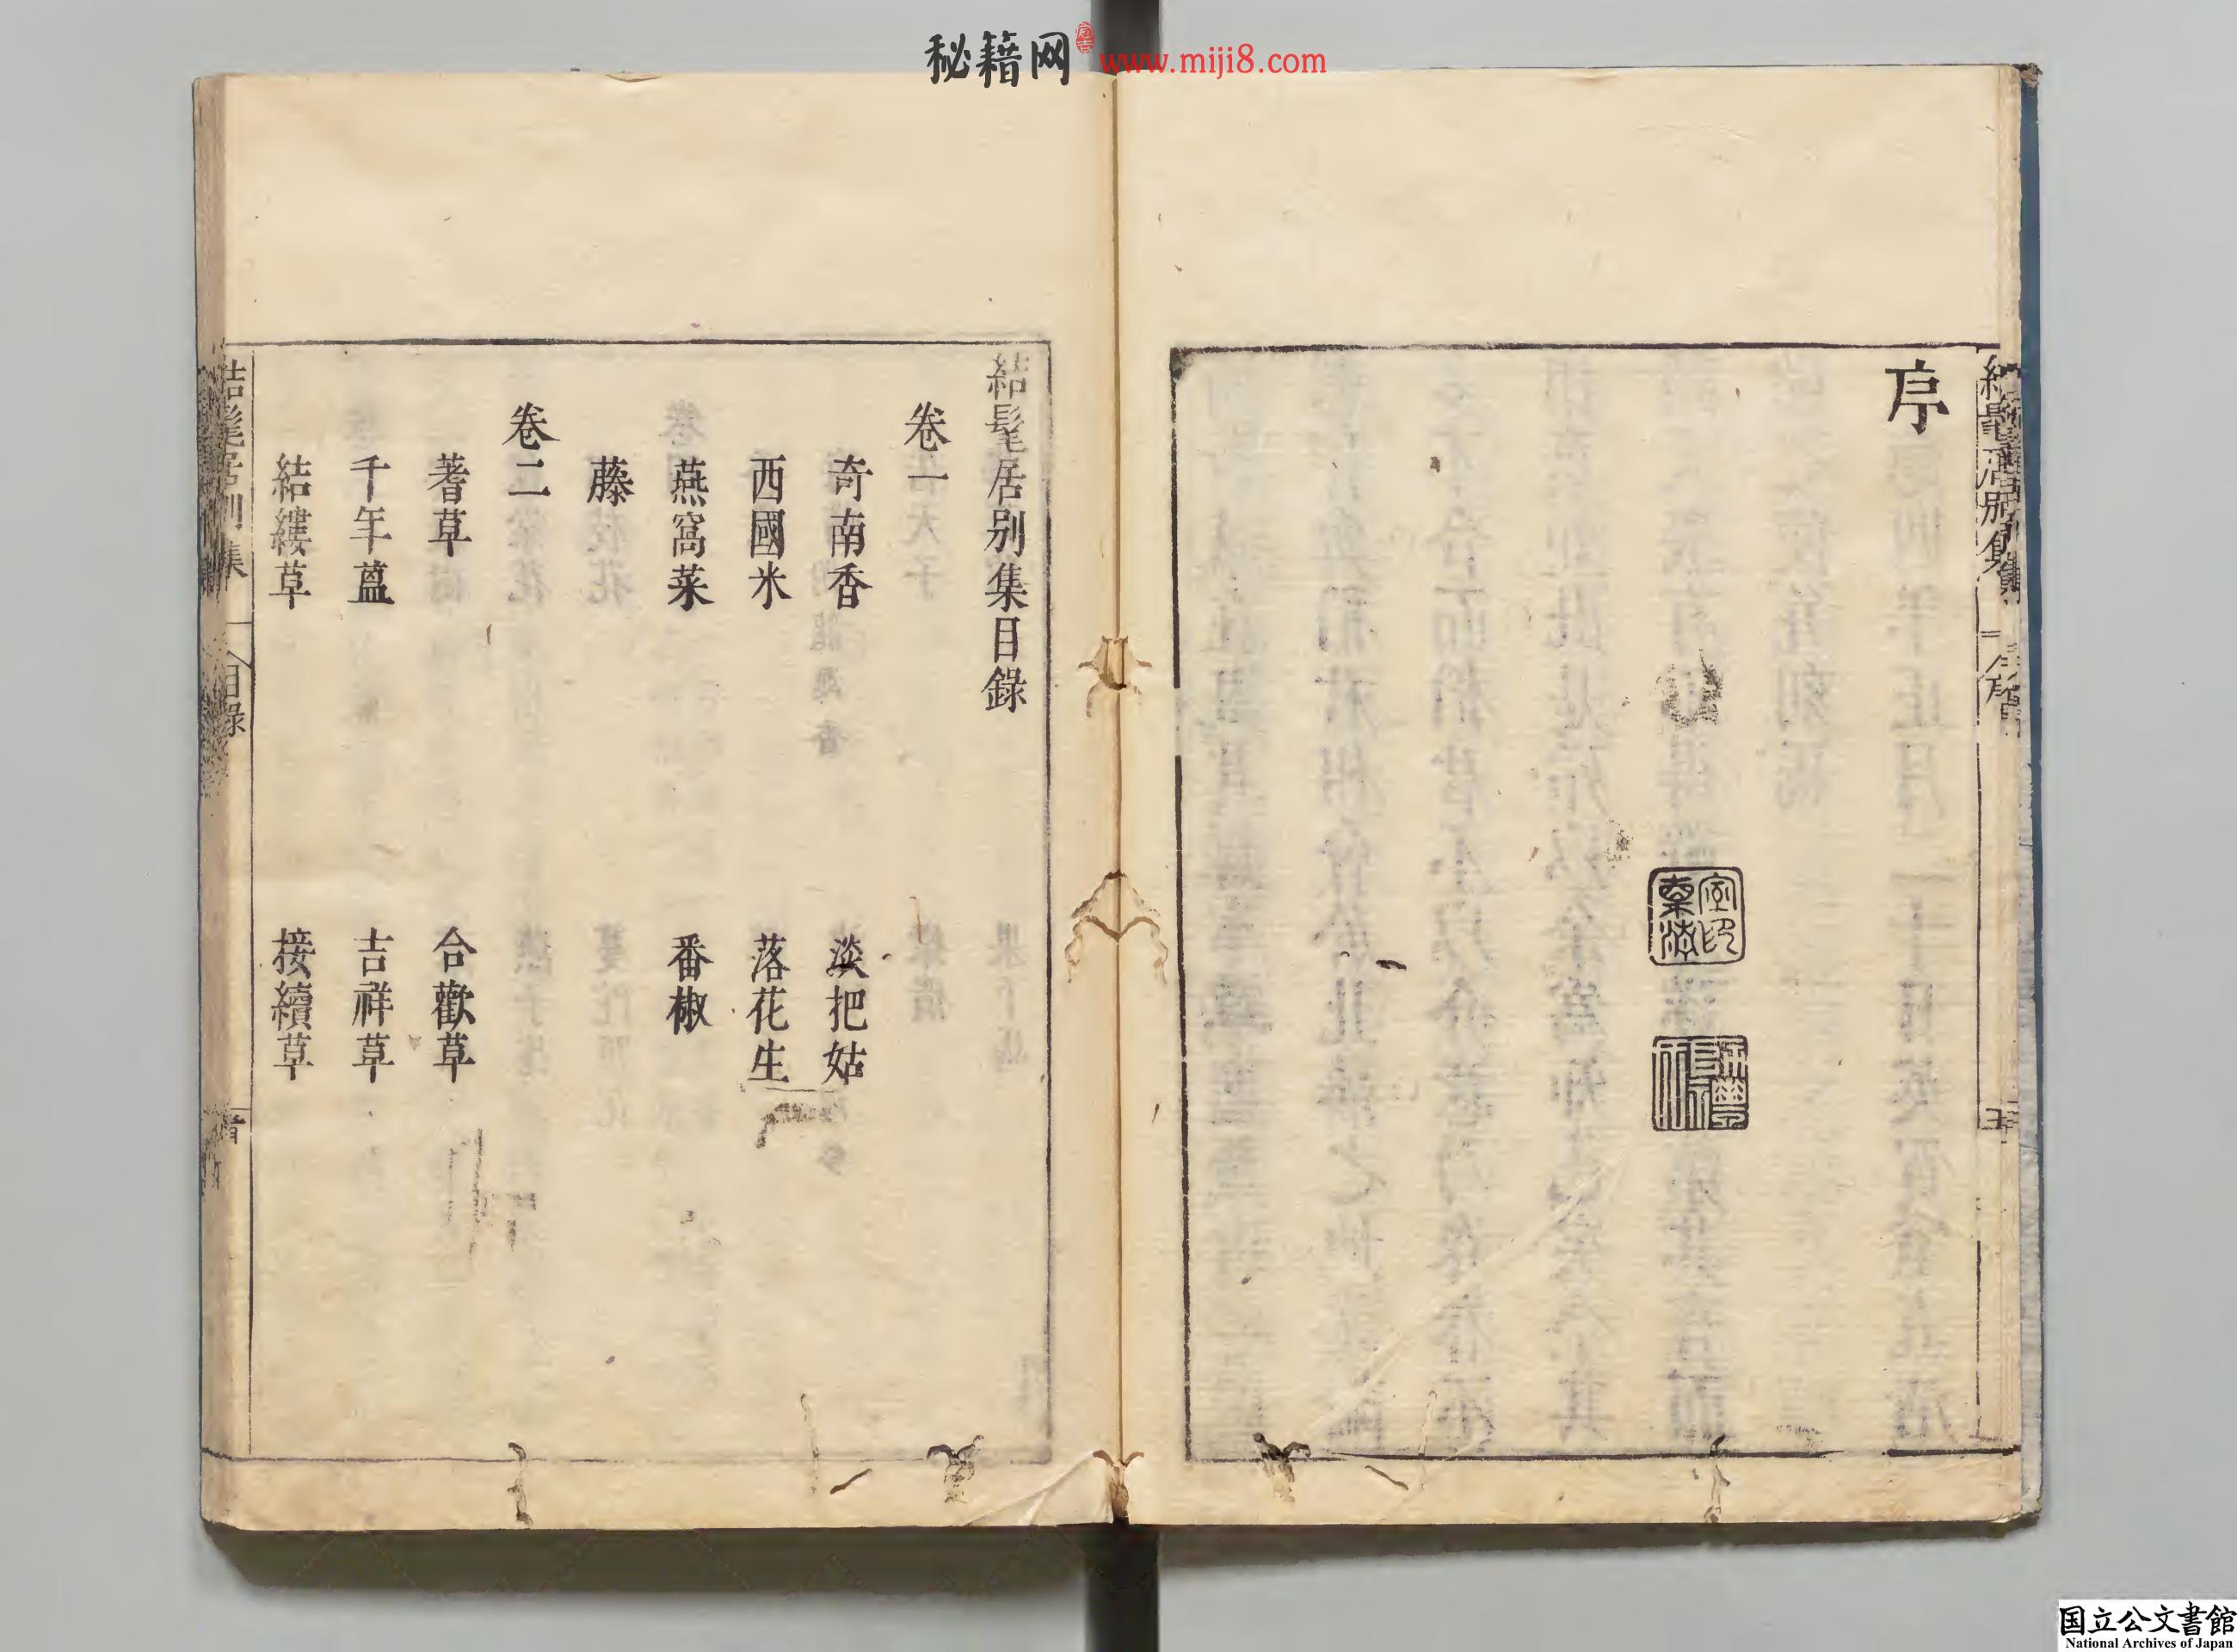 秘籍网 www.miji8.com
序
結髦居別集目錄
卷一
奇南香 淡把姑
西國米 落花生
燕窩菜 番椒
藤
卷二
蓍草 合歡草
千年蒀 吉祥草
結縷草 接續草
目錄
国立公文書館
National Archives of Japan